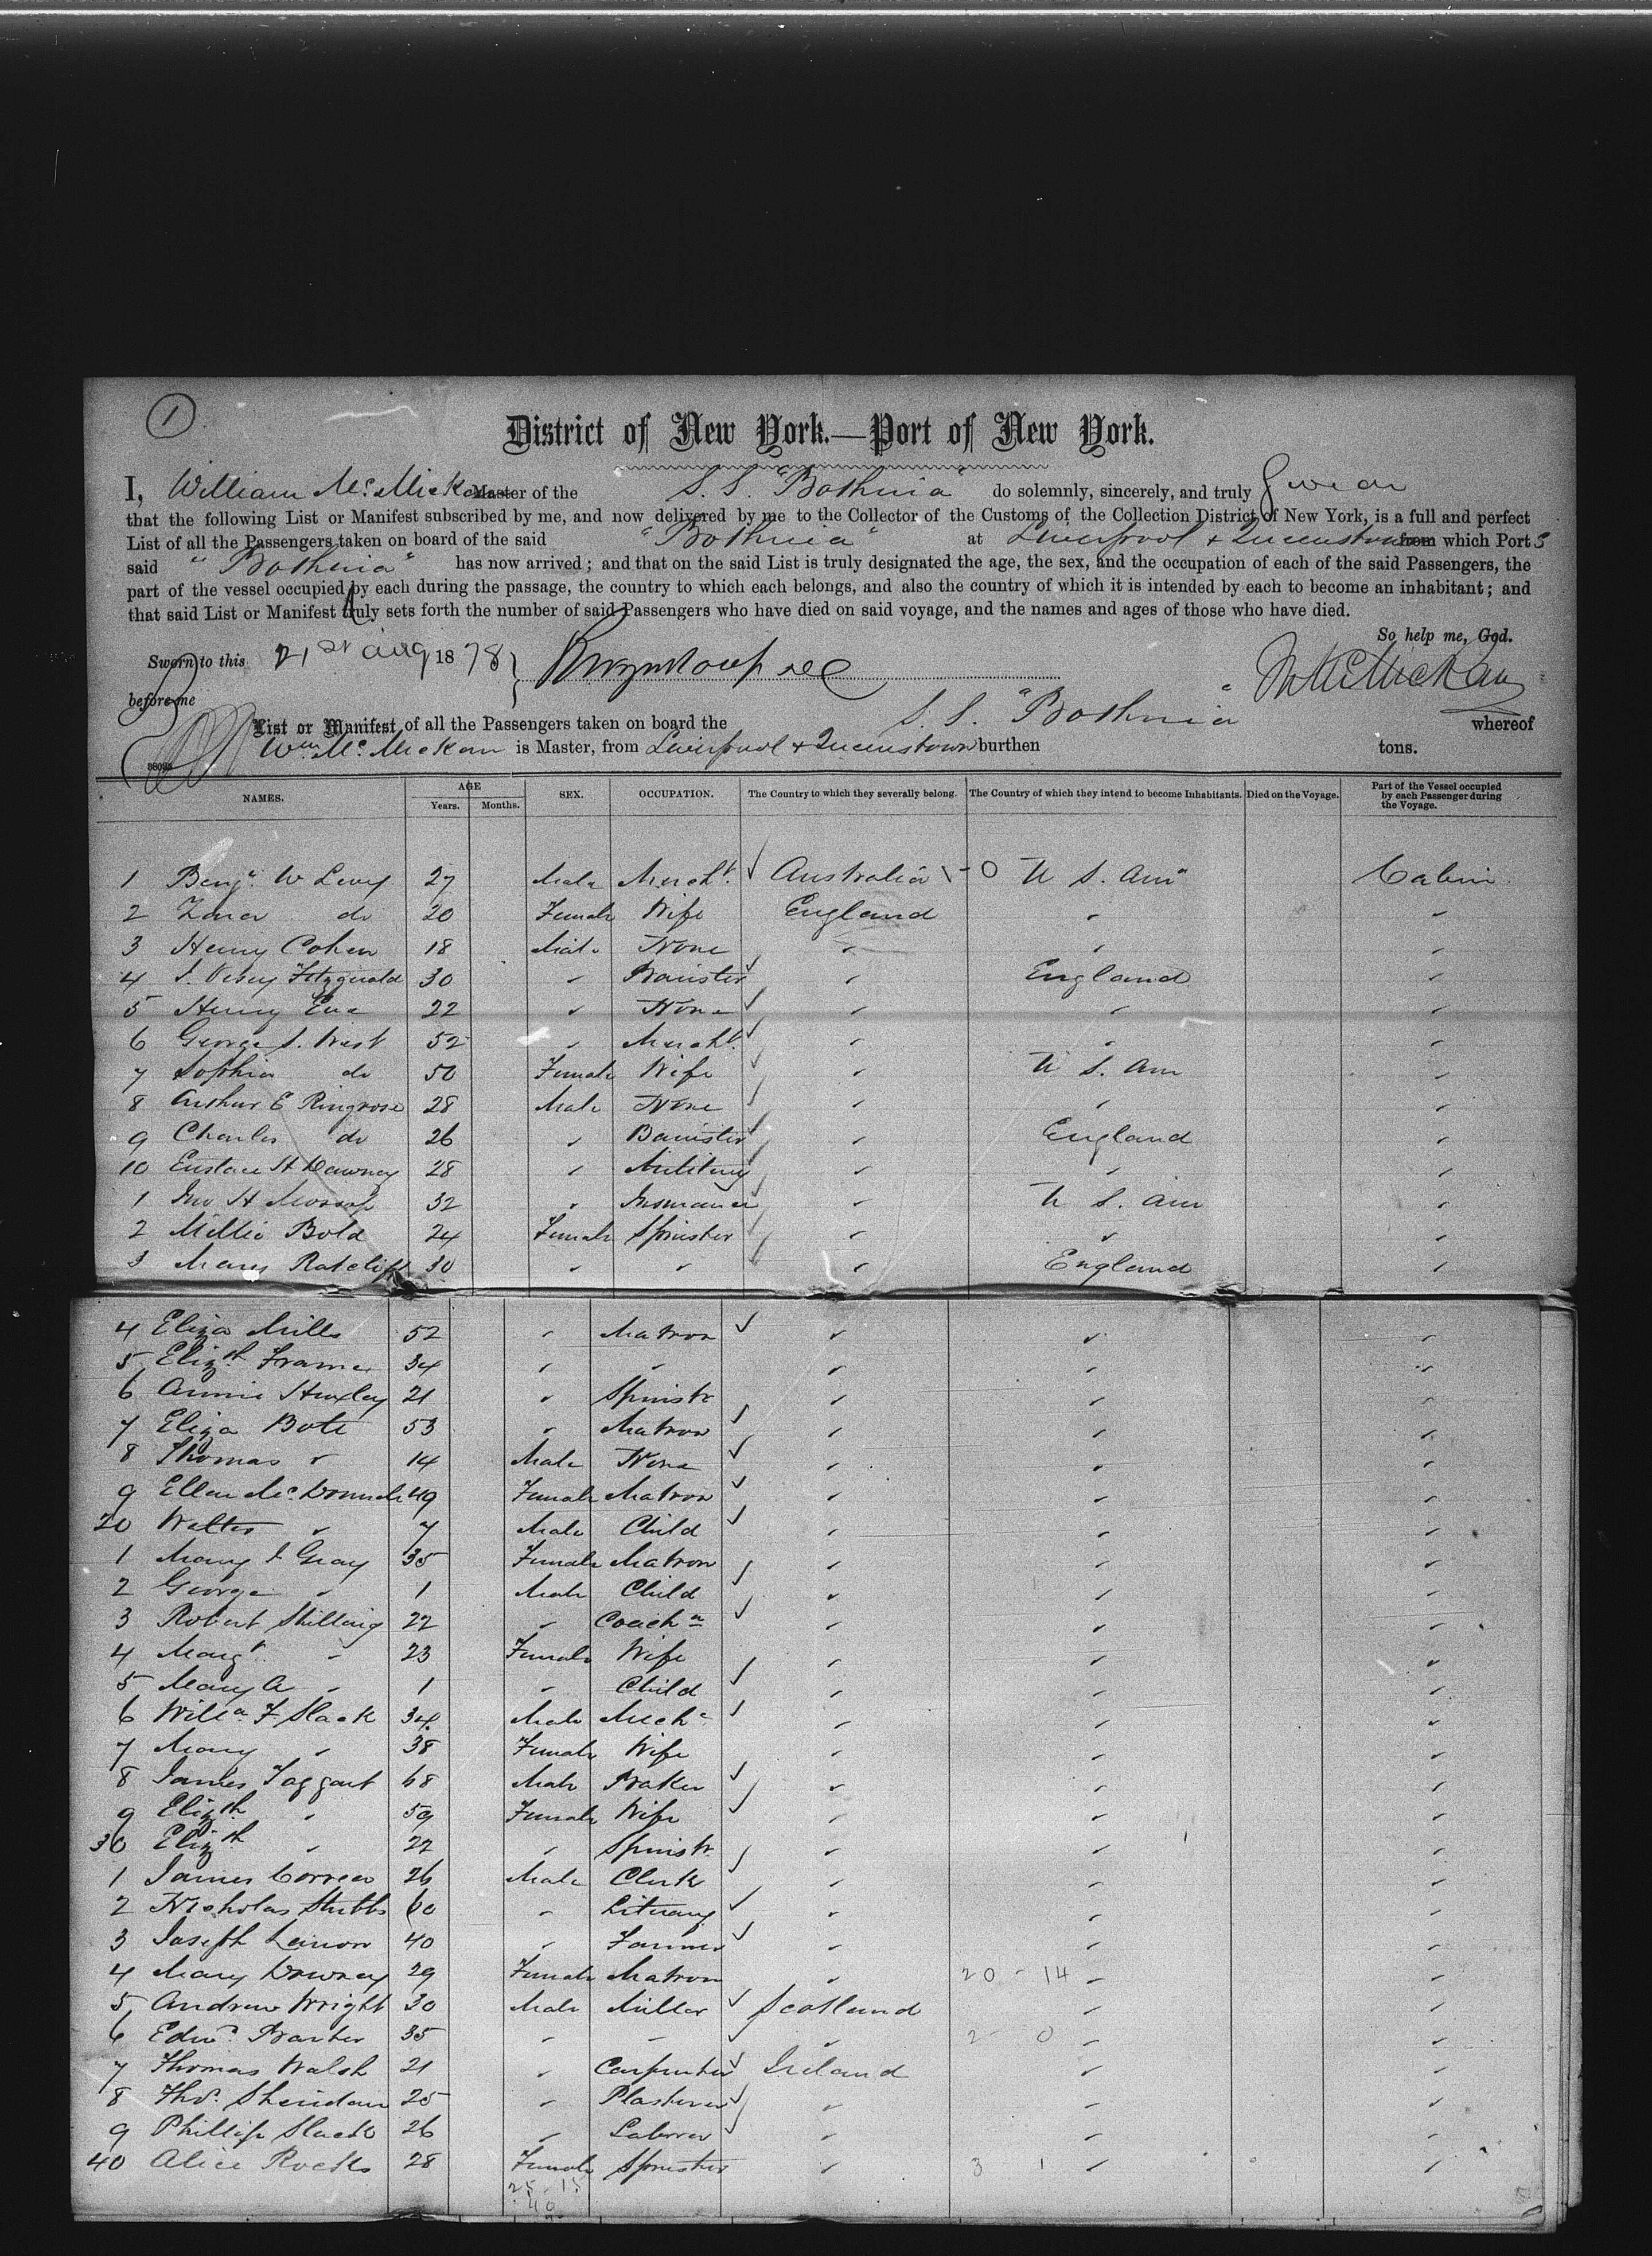 1
District of New York.—Port of New York.
I, William Mc. Mickan Master of the S. S. "Bothnia" do solemnly, sincerely, and truly Swear
that the following List or Manifest subscribed by me, and now delivered by me to the Collector of the Customs of the Collection District of New York, is a full and perfect
List of all the Passengers taken on board of the said "Bothnia" at Liverpool & Queenstown from which Port s
said "Bothnia" has now arrived; and that on the said List is truly designated the age, the sex, and the occupation of each of the said Passengers, the
part of the vessel occupied by each during the passage, the country to which each belongs, and also the country of which it is intended by each to become an inhabitant; and
that said List or Manifest truly sets forth the number of said Passengers who have died on said voyage, and the names and ages of those who have died.
So help me, God.
Sworn to this 21st Aug 1878
before me
W McMickan
List or Manifest of all the Passengers taken on board the S. S. "Bothnia" whereof
Wm. Mc. Mickan is Master, from Liverpool & Queenstown burthen tons.
NAMES. AGE Years. Months. SEX. OCCUPATION. The Country to which they severally belong. The Country of which they intend to become Inhabitants. Died on the Voyage. Part of the Vessel occupied by each Passenger during the Voyage.
1 Benjn. W Levy 27 Male Mercht. Australia 1-0 U S. Am Cabin
2 Zara do 20 Female Wife England " "
3 Henry Cohen 18 Male None " " "
4 Vesey Fitzgerald 30 " Barrister " England "
5 Henry 22 " None " " "
6 George S. West 52 " Mercht. " " "
7 Sophia do 50 Female Wife " U S. Am "
8 Arthur E Ringrose 28 Male None " " "
9 Charles do 26 " Barrister " England "
10 Eustace H Dawnay 28 " Military " " "
1 Jno H Mossop 32 " Insurance " U S. Am "
2 Millie Bold 24 Female Spinster " " "
3 Mary Ratcliff 30 " " " England "
4 Eliza Mills 52 " Matron " " "
5 Elizth Frame 34 " " " " "
6 Annie Huxley 21 " Spinstr " " "
7 Eliza Bote 53 " Matron " " "
8 Thomas " 14 Male None " " "
9 Ellen Mc. 49 Female Matron " " "
20 Walter " 7 Male Child " " "
1 Mary J Gray 35 Female Matron " " "
2 George " 1 Male Child " " "
3 Robert Shilling 22 " Coachn " " "
4 Margt. " 23 Female Wife " " "
5 Mary A " 1 " Child " " "
6 Willm F Slack 34 Male Mechc " " "
7 Mary " 38 Female Wife " " "
8 James Taggart 68 Male Baker " " "
9 Elizth " 59 Female Wife " " "
30 Elizth " 22 " Spinstr. " " "
1 James 26 Male Clerk " " "
2 Nicholas Stubbs 60 " Literary " " "
3 Joseph Lennon 40 " Farmer " " "
4 Mary Downey 29 Female Matron " 20 - 14 " "
5 Andrew Wright 30 Male Miller Scotland " "
6 Edwd. Baxter 35 " " " 2 - 0 " "
7 Thomas Walsh 21 " Carpenter Ireland " "
8 Thos. Sheridan 25 " Plasterer " " "
9 Phillip Slack 26 " Laborer " " "
40 Alice Rocks 28 Female Spinster " 3 1 " "
25-15
40